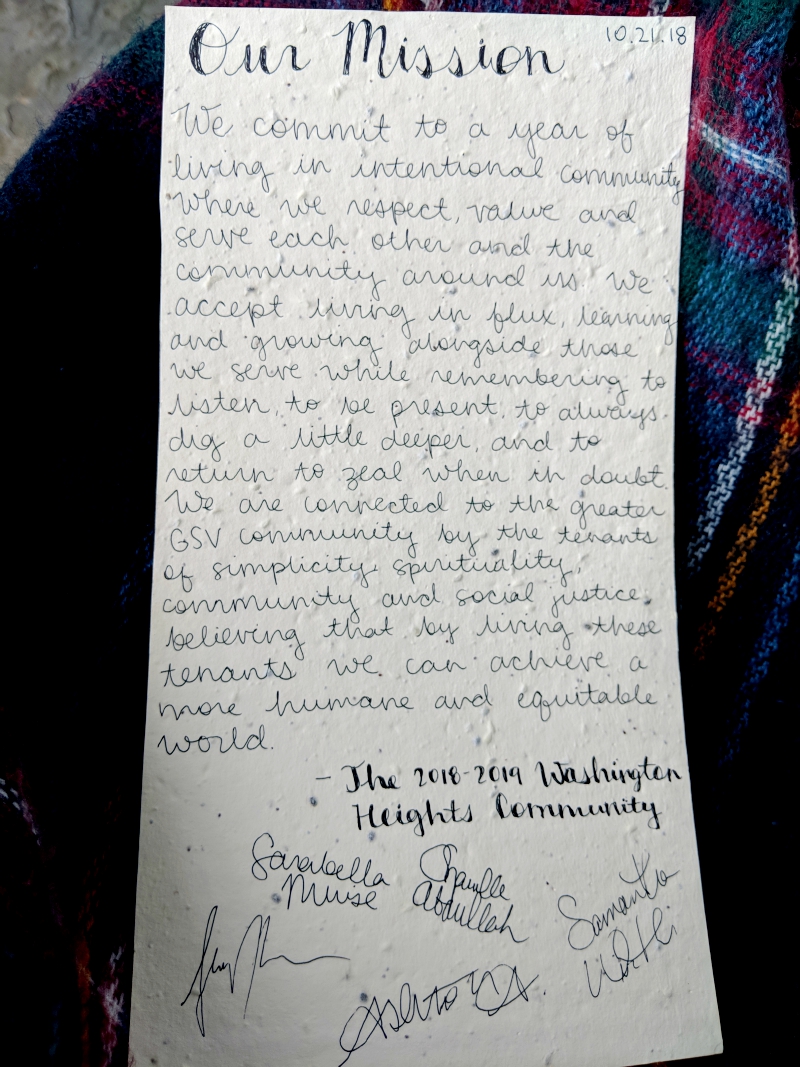 10.21.18
Our Mission
We commit to a year of
living in intentional community
where we respect, value and
serve each other and the
community around us. We
accept living in flux, learning
and growing alongside those
we serve while remembering to
listen, to be present, to always
dig a little deeper, and to
return to zeal when in doubt.
We are connected to the greater
GSV community by the tenants
of simplicity, spirituality,
community and social justice,
believing that by living these
tenants we can achieve a
more humane and equitable
world.
- The 2018-2019 Washington
Heights Community
Sarabella
Muise
Abdullah
Samantha